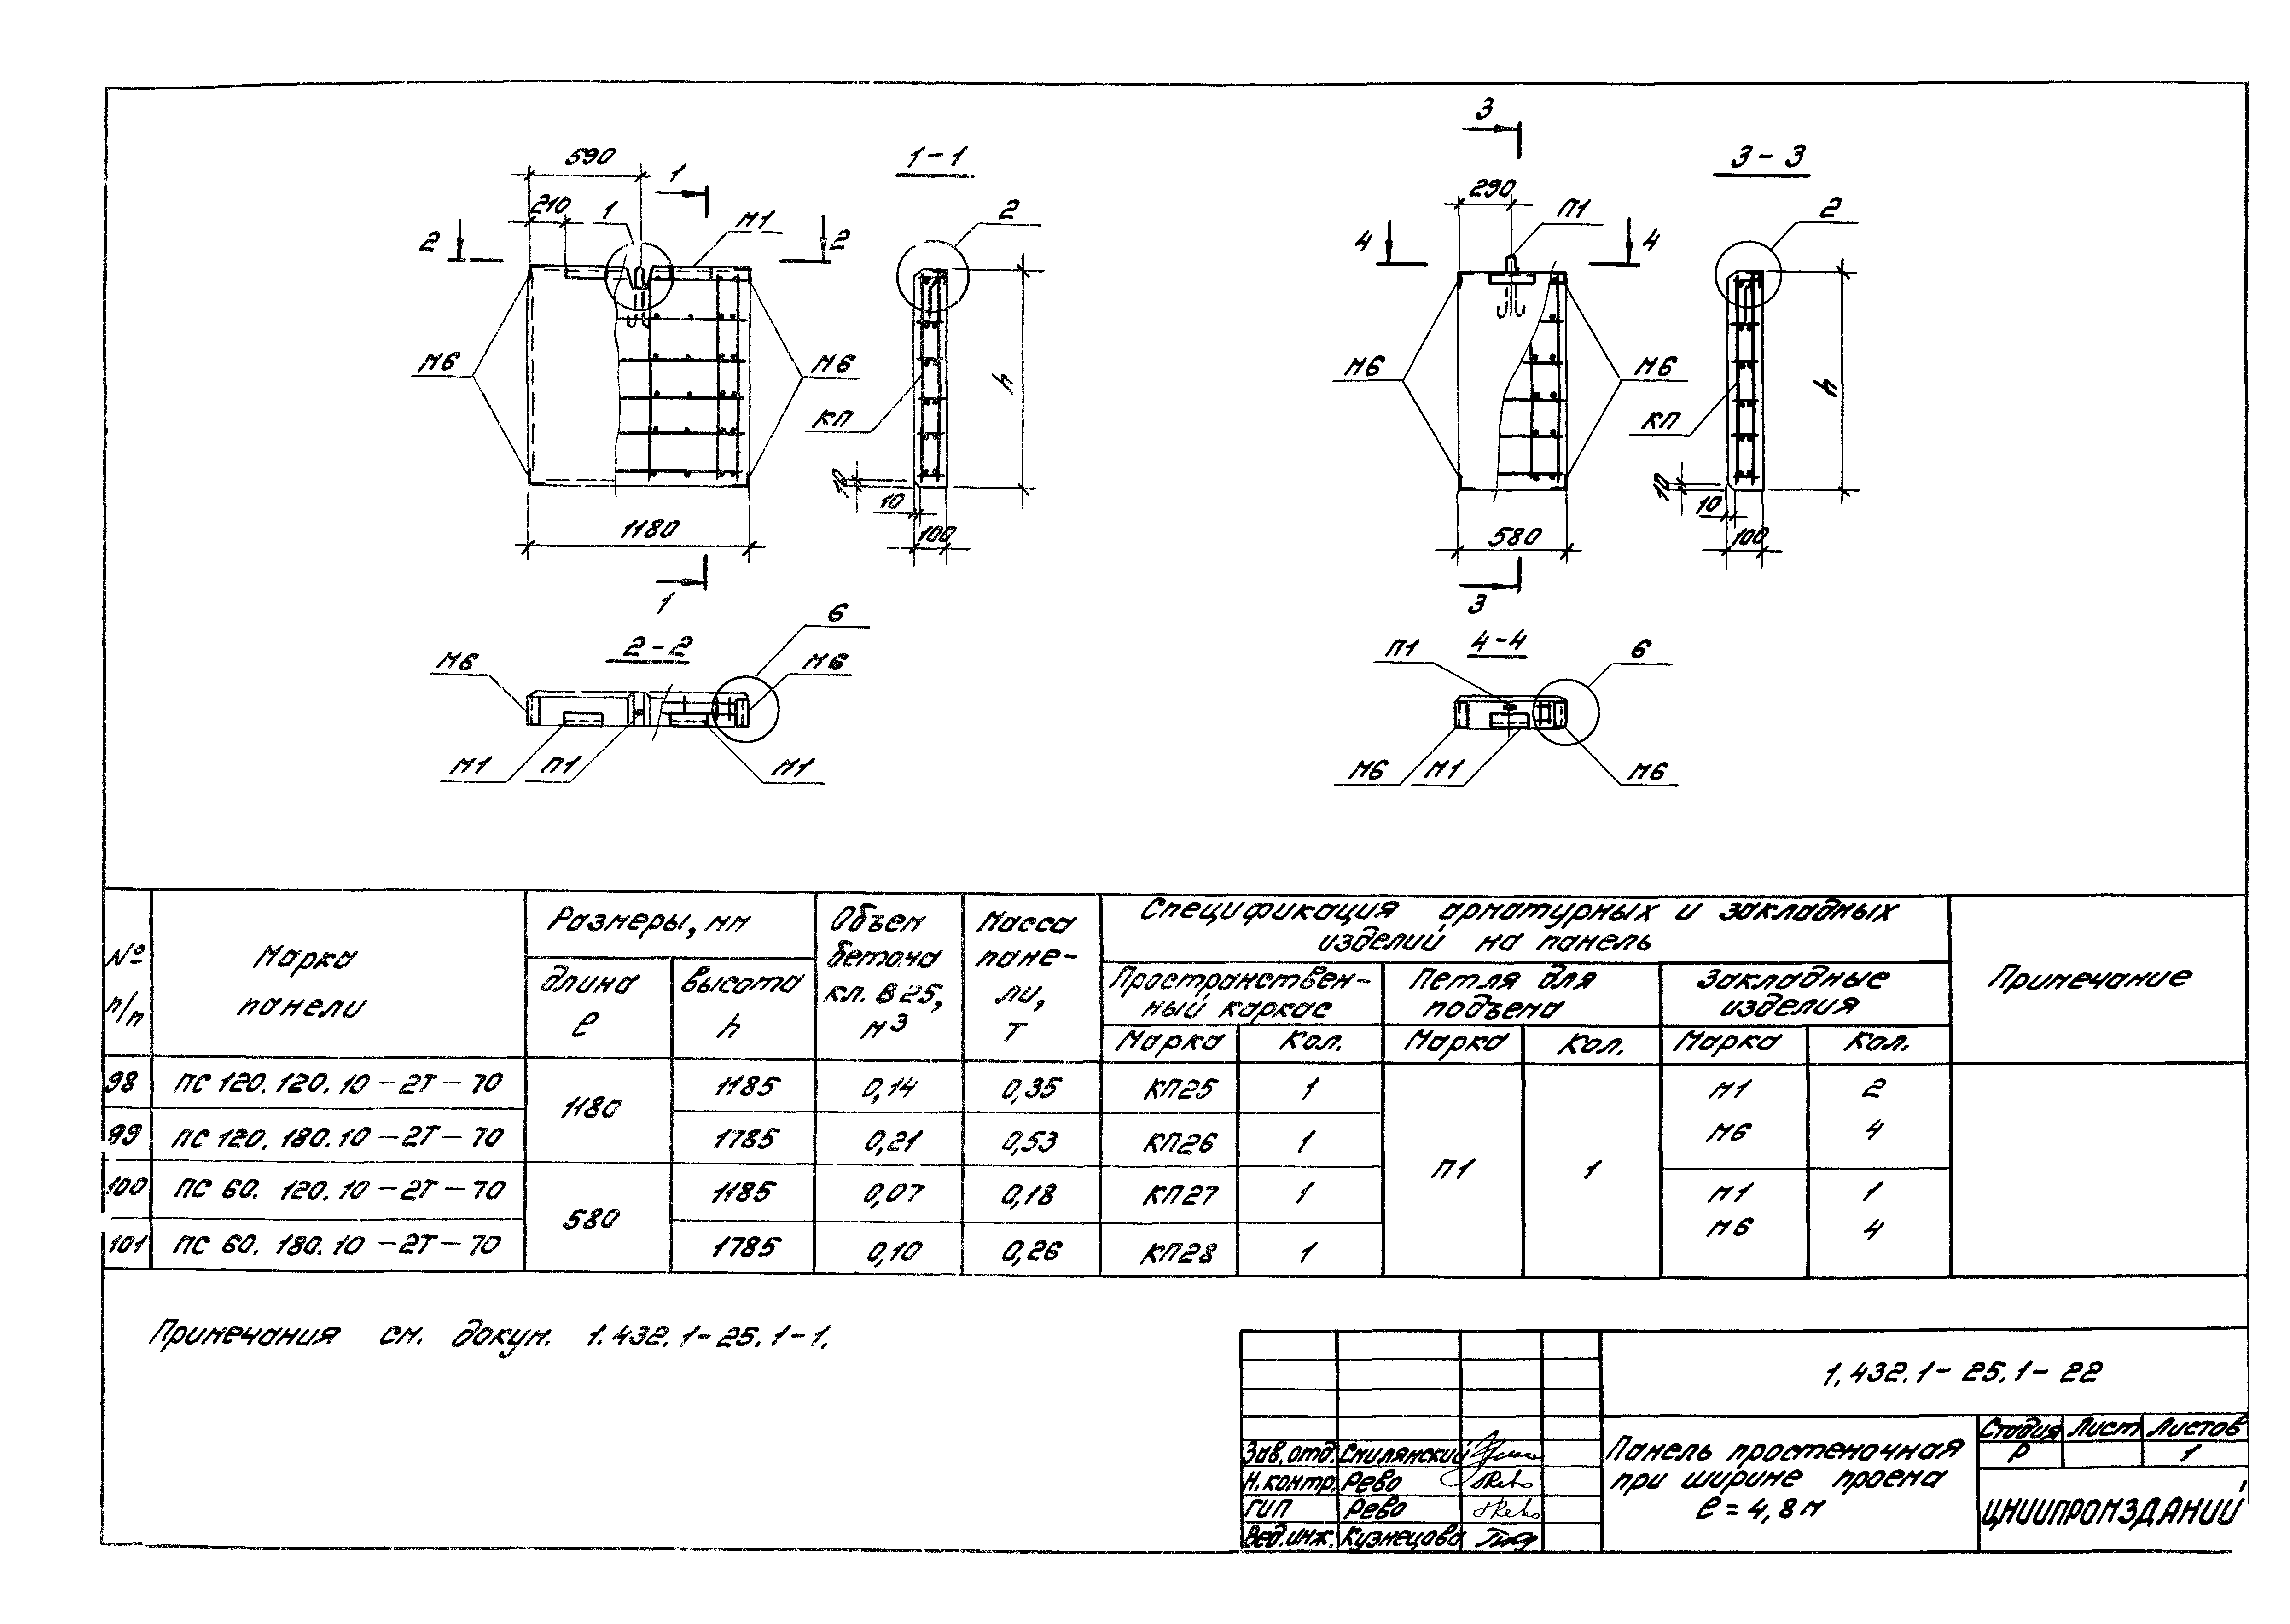 590
210
1
1
М1
2
2
М6
М6
1180
1
1-1
2
КП
h
10
10
100
3
3-3
290
П1
2
4
4
М6
М6
580
3
КП
h
10
10
100
2-2
6
М6
М6
М1
П1
М1
4-4
П1
6
М6
М1
М6
№ п/п
Марка панели
Размеры, мм
длина ℓ
высота h
Объем бетона кл. В25, м³
Масса панели, т
Спецификация арматурных и закладных
изделий на панель
Пространствен-
ный каркас
Петля для
подъема
Закладные
изделия
Примечание
Марка Кол. Марка Кол. Марка Кол.
98 ПС 120.120.10-2Т-70 1180 1185 0,14 0,35 КП25 1 П1 1 М1 2
99 ПС 120.180.10-2Т-70 1785 0,21 0,53 КП26 1 М6 4
100 ПС 60.120.10-2Т-70 580 1185 0,07 0,18 КП27 1 М1 1
101 ПС 60.180.10-2Т-70 1785 0,10 0,26 КП28 1 М6 4
Примечания см. докум. 1.432.1-25.1-1.
1.432.1-25.1-22
Зав. отд. Смилянский
Н. контр. Рево
ГИП Рево
Вед. инж. Кузнецова
Панель простеночная
при ширине проема
ℓ = 4,8 м
Стадия Лист Листов
Р 1
ЦНИИПРОМЗДАНИЙ